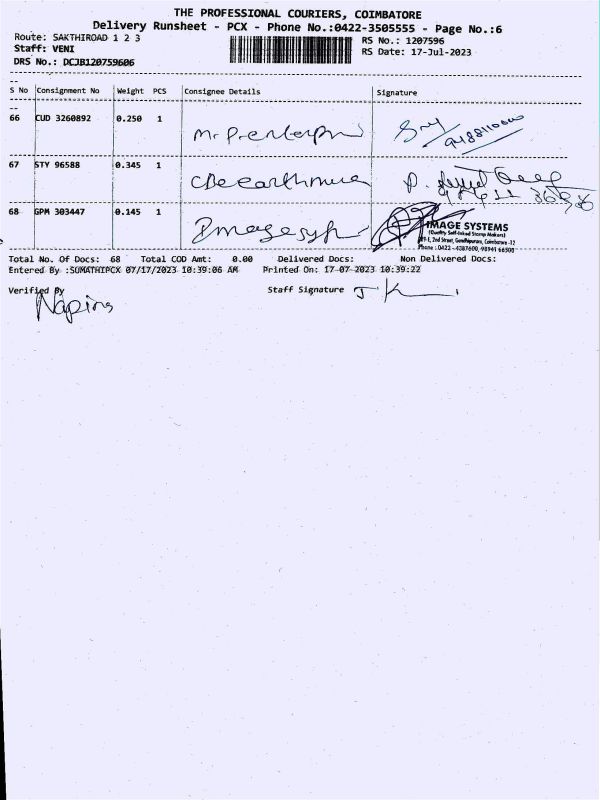 THE PROFESSIONAL COURIERS, COIMBATORE
Delivery Runsheet - PCX - Phone No.:0422-3505555 - Page No.:6
Route: SAKTHIROAD 1 2 3
RS No.: 1207596
Staff: VENI
RS Date: 17-Jul-2023
DRS No.: DCJB120759606
S No Consignment No Weight PCS Consignee Details Signature
66 CUD 3260892 0.250 1
67 STY 96588 0.345 1
68 GPM 303447 0.145 1
IMAGE SYSTEMS
(Quality Self-Inked Stamp Makers)
2nd Street, Gandhipuram, Coimbatore -12
Total No. Of Docs: 68 Total COD Amt: 0.00 Delivered Docs: Non Delivered Docs:
Entered By :SUMATHIPCX 07/17/2023 10:39:06 AM Printed On: 17-07-2023 10:39:22
Verified By
Staff Signature